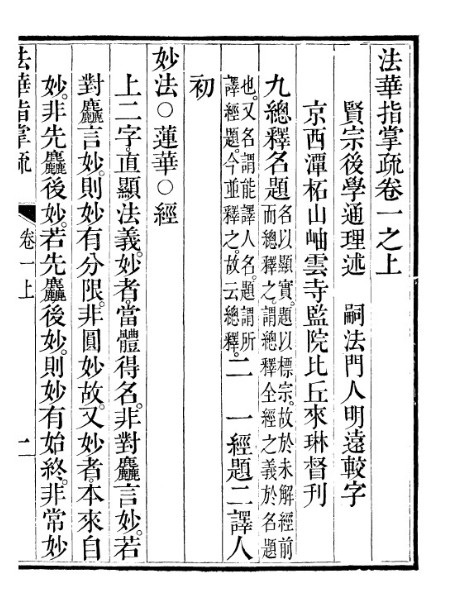 法華指掌疏卷一之上
賢宗後學通理述　嗣法門人明遠較字
京西潭柘山岫雲寺監院比丘來琳督刊
九總釋名題名以顯實。題以標宗。故於未解經前而總釋之。謂總釋全經之義於名題
也。又名謂能譯人名。題謂所譯經題。今並釋之。故云總釋。二　一經題二譯人
初
妙法○蓮華○經
上二字。直顯法義。妙者。當體得名。非對麤言妙。若
對麤言妙。則妙有分限。非圓妙故。又妙者。本來自
妙。非先麤後妙。若先麤後妙。則妙有始終。非常妙
法華指掌疏　卷一上　二